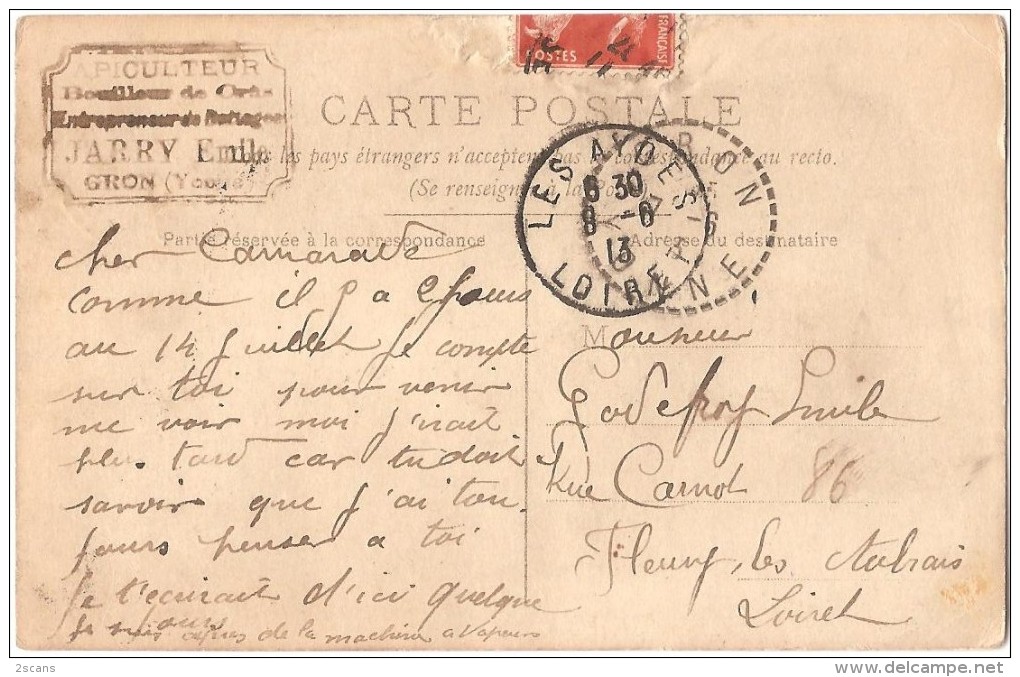 APICULTEUR
Bouilleur de Crûs
Entrepreneur de Battages
JARRY Emile
GRON (Yonne)
FRANÇAISE
POSTES
CARTE POSTALE
les pays étrangers n'acceptent pas la correspondance au recto.
(Se renseigner à la Poste)
LES AYDE
6 30
8 - 6
13
LOIRET
GRON
YONNE
Partie réservée à la correspondance
Adresse du destinataire
cher Camarade
comme il y a 2 jours
au 14 juillet je compte
sur toi pour venir
me voir moi j'irait
plus tard car tu doit
savoir que j'ai tou-
jours penser a toi
Je t'ecrirait d'ici quelque
jours
Je suis apres de la machine a vapeurs
Monsieur
Godefroy Emile
Rue Carnot 86
Fleury, les Aubrais
Loiret
2scans
delcampe.net